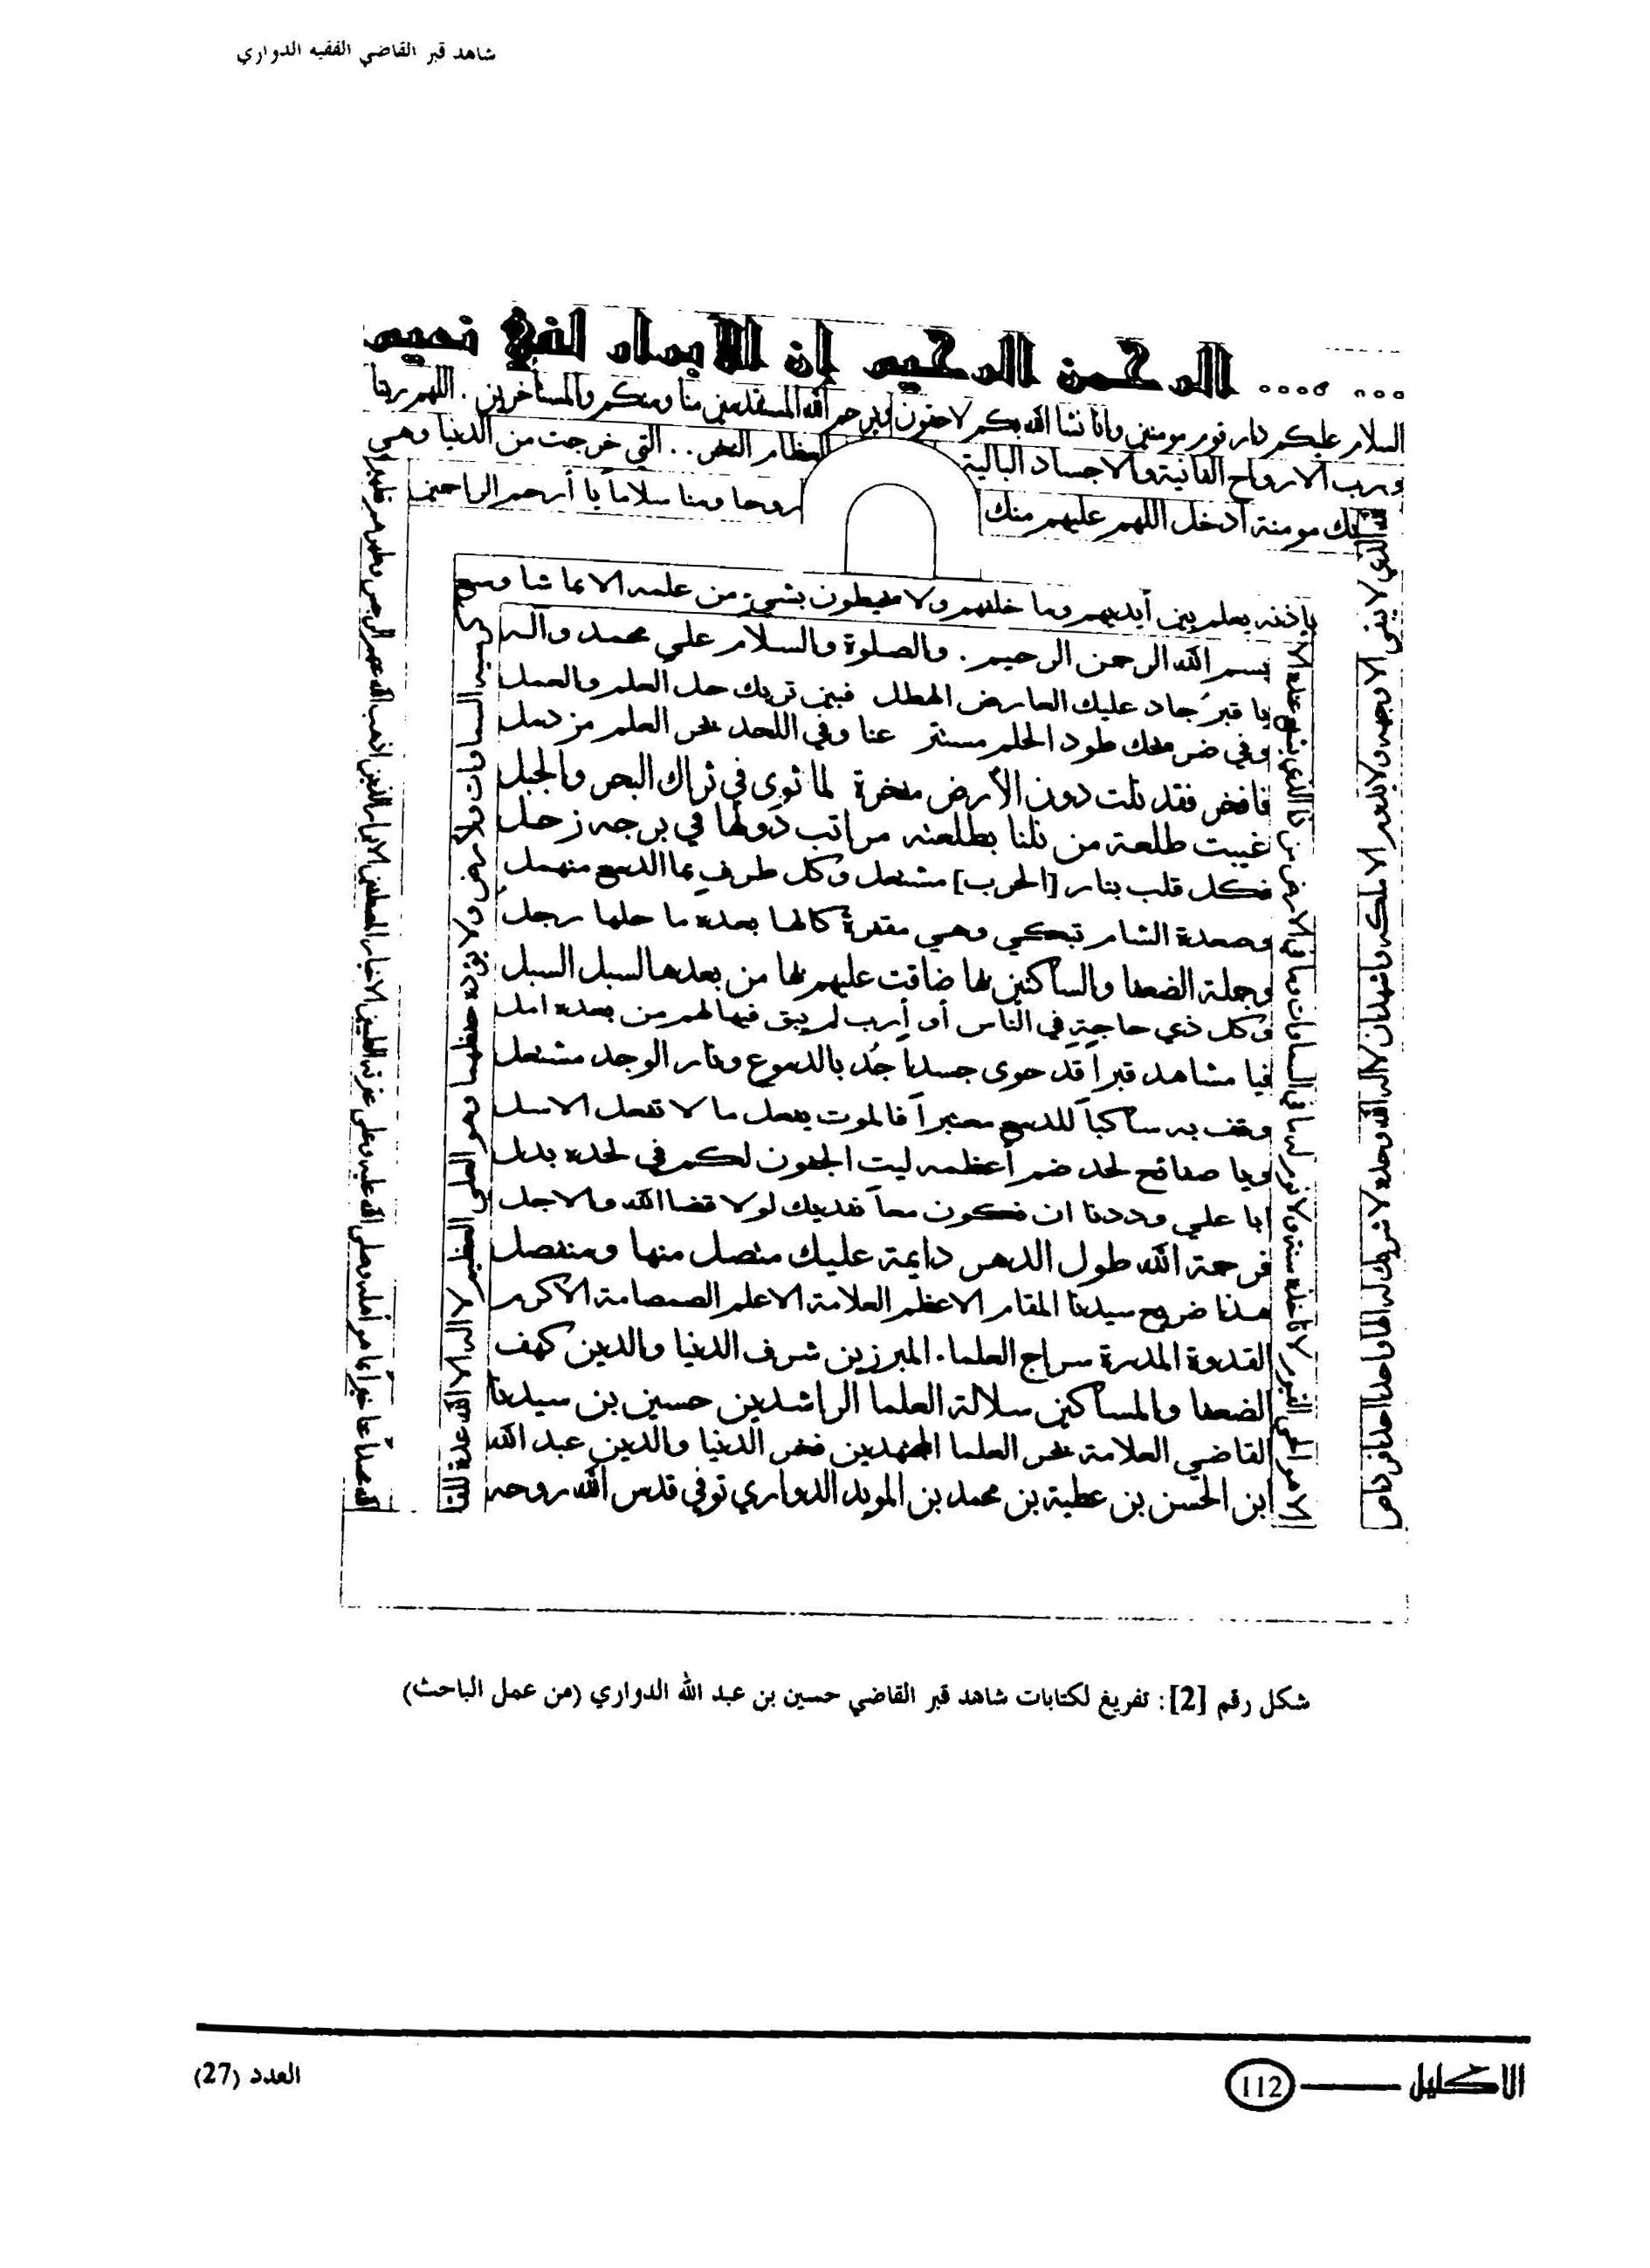 شاهد قبر القاضي الفقيه الدواري
... .... الرحمن الرحيم إن الأبرار لفي نعيم
السلام عليكم دار قوم مومنين وانا انشا الله بكم لاحقون ويرحم الله المستقدمين منا ومنكم والمستأخرين . اللهم ربنا
ورب الارواح الفانية والاجساد البالية والعظام النخرة .. التي خرجت من الدنيا وهي
بك مومنة أدخل اللهم عليهم منك روحا ومنا سلاماً يا أرحم الراحمين
لله الذي لا يبقى الا وجهه ولا يدوم الا ملكه واشهد ان لا اله الا الله وحده لا شريك له الها واحدا احدا فردا
الا هو الحي القيوم لا تاخذه سنة ولا نوم له ما في السماوات وما في الارض من ذا الذي يشفع عنده الا
باذنه يعلم بين أيديهم وما خلفهم ولا يحيطون بشيء من علمه الا بما شا وسع
كرسيه السماوات والأرض ولا يؤده حفظهما وهو العلي العظيم لا اله الا الله عدة للقا
بسم الله الرحمن الرحيم . والصلوة والسلام علي محمد وآله
يا قبر جاد عليك العارض الهطل فبين تربك حل العلم والعمل
وفي ضريحك طود الحلم مستتر عنا وفي اللحد بحر العلم مزدمل
فافخر فقد نلت دون الأرض مفخرة لما ثوى في ثراك البحر والجبل
غيبت طلعة من نلنا بطلعته مراتب دونها في برجه زحل
فكل قلب بنار [الحرب] مشتعل وكل طرف بما الدمع منهمل
وصعدة الشام تبكي وهي مقفرة كانها بعده ما حلها رجل
وجملة الضعفا والساكنين بها ضاقت عليهم بها من بعدها السبل السبل
وكل ذي حاجة في الناس أو أرب لم يبق فيها لهم من بعده امل
فيا مشاهد قبراً قد حوى جسداً جُد بالدموع ونار الوجد مشتعل
وقف به ساكباً للدمع معتبراً فالموت يفعل ما لا تفعل الاسل
ويا صفائح لحد ضم أعظمه ليت الجفون لكم في لحده بدل
ابا علي وددنا ان نكون معاً نفديك لولا قضا الله والاجل
فرحمة الله طول الدهر دايمة عليك متصل منها ومنفصل
هذا ضريح سيدنا المقام الاعظم العلامة الاعلم الصمصامة الاكرم
القدوة المدرة سراج العلماء المبرزين شرف الدنيا والدين كهف
الضعفا والمساكين سلالة العلما الراشدين حسين بن سيدنا
القاضي العلامة بحر العلما المجتهدين فخر الدنيا والدين عبد الله
ابن الحسن بن عطية بن محمد بن المويد الدواري توفي قدس الله روحه
شكل رقم [2]: تفريغ لكتابات شاهد قبر القاضي حسين بن عبد الله الدواري (من عمل الباحث)
الاكليل 112 العدد (27)